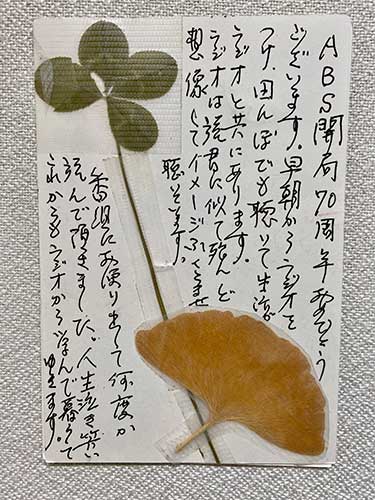 ABS開局70周年おめでとう
ございます。早朝からラジオを
つけ、田んぼでも聴いて生活
ラジオと共にあります。
ラジオは読書に似て殆んど
想像してイメージふくらませ
聴いてます。
番組にお便り出して何度か
読んで頂きました。人生泣き笑い
これからもラジオから学んで暮して
ゆきます。